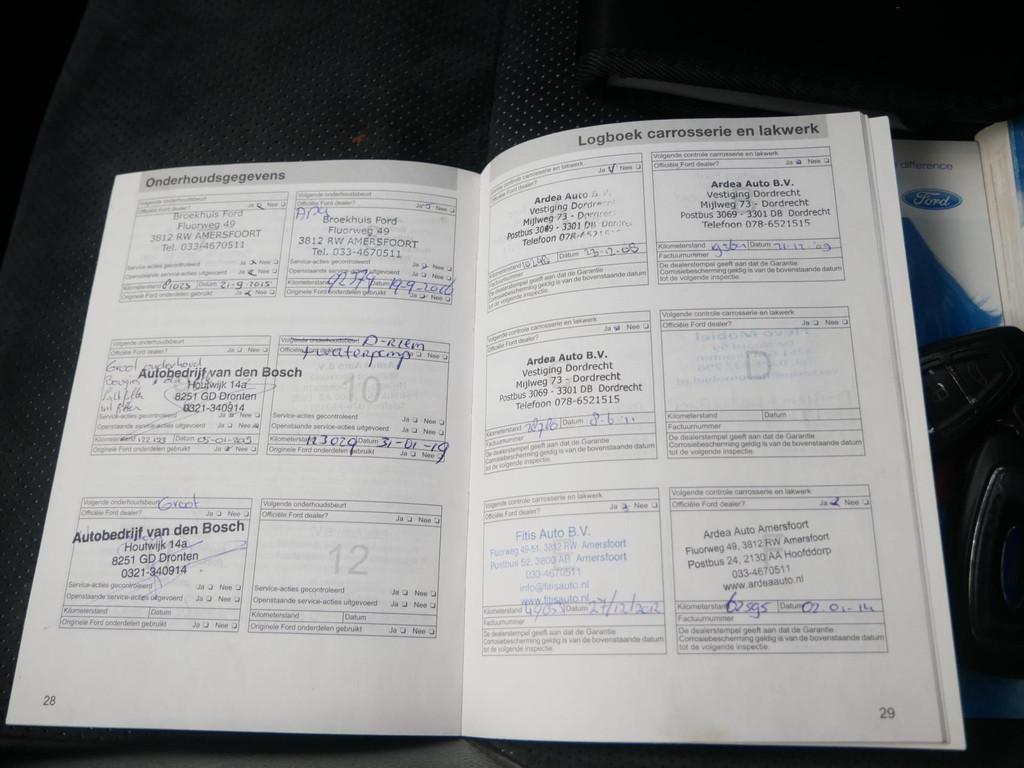 Onderhoudsgegevens
Volgende onderhoudsbeurt
Officiële Ford dealer? Ja Nee
Broekhuis Ford
Fluorweg 49
3812 RW AMERSFOORT
Tel. 033-4670511
Service-acties gecontroleerd Ja Nee
Openstaande service-acties uitgevoerd Ja Nee
Kilometerstand 81023 Datum 21-9-2015
Originele Ford onderdelen gebruikt Ja Nee
Volgende onderhoudsbeurt
Ja Nee
Broekhuis Ford
Fluorweg 49
3812 RW AMERSFOORT
Tel. 033-4670511
Service-acties gecontroleerd Ja Nee
Openstaande service-acties uitgevoerd Ja Nee
Kilometerstand 92779 Datum 19-9-2016
Originele Ford onderdelen gebruikt Ja Nee
Volgende onderhoudsbeurt
Officiële Ford dealer? Ja Nee
Groot onderhoud
Autobedrijf van den Bosch
Houtwijk 14a
8251 GD Dronten
0321-340914
Service-acties gecontroleerd Ja Nee
Openstaande service-acties uitgevoerd Ja Nee
Kilometerstand Datum
Originele Ford onderdelen gebruikt Ja Nee
Volgende onderhoudsbeurt D-Riem
+waterpomp
Ja Nee
10
Service-acties gecontroleerd Ja Nee
Openstaande service-acties uitgevoerd Ja Nee
Kilometerstand 123029 Datum 31-01-19
Originele Ford onderdelen gebruikt Ja Nee
Volgende onderhoudsbeurt Groot
Officiële Ford dealer? Ja Nee
Autobedrijf van den Bosch
Houtwijk 14a
8251 GD Dronten
0321-340914
Service-acties gecontroleerd Ja Nee
Openstaande service-acties uitgevoerd Ja Nee
Kilometerstand Datum
Originele Ford onderdelen gebruikt Ja Nee
Volgende onderhoudsbeurt
Officiële Ford dealer? Ja Nee
12
Service-acties gecontroleerd Ja Nee
Openstaande service-acties uitgevoerd Ja Nee
Kilometerstand Datum
Originele Ford onderdelen gebruikt Ja Nee
28
Logboek carrosserie en lakwerk
Volgende controle carrosserie en lakwerk
Officiële Ford dealer? Ja Nee
Ardea Auto B.V.
Vestiging Dordrecht
Mijlweg 73 - Dordrecht
Postbus 3069 - 3301 DB Dordrecht
Telefoon 078-6521515
Kilometerstand Datum
Factuurnummer
De dealerstempel geeft aan dat de Garantie
Corrosiebescherming geldig is van de bovenstaande datum
tot de volgende inspectie.
Volgende controle carrosserie en lakwerk
Officiële Ford dealer? Ja Nee
Ardea Auto B.V.
Vestiging Dordrecht
Mijlweg 73 - Dordrecht
Postbus 3069 - 3301 DB Dordrecht
Telefoon 078-6521515
Kilometerstand Datum 21-12-09
Factuurnummer
De dealerstempel geeft aan dat de Garantie
Corrosiebescherming geldig is van de bovenstaande datum
tot de volgende inspectie.
Volgende controle carrosserie en lakwerk
Officiële Ford dealer? Ja Nee
Ardea Auto B.V.
Vestiging Dordrecht
Mijlweg 73 - Dordrecht
Postbus 3069 - 3301 DB Dordrecht
Telefoon 078-6521515
Kilometerstand Datum 8-6-11
Factuurnummer
De dealerstempel geeft aan dat de Garantie
Corrosiebescherming geldig is van de bovenstaande datum
tot de volgende inspectie.
Volgende controle carrosserie en lakwerk
Officiële Ford dealer? Ja Nee
D
Kilometerstand Datum
Factuurnummer
De dealerstempel geeft aan dat de Garantie
Corrosiebescherming geldig is van de bovenstaande datum
tot de volgende inspectie.
Volgende controle carrosserie en lakwerk
Officiële Ford dealer? Ja Nee
Fitis Auto B.V.
Fluorweg 49-51, 3812 RW Amersfoort
Postbus 52, 3800 AB Amersfoort
033-4670511
info@fitisauto.nl
www.fitisauto.nl
Kilometerstand Datum 27/12/2012
Factuurnummer
De dealerstempel geeft aan dat de Garantie
Corrosiebescherming geldig is van de bovenstaande datum
tot de volgende inspectie.
Volgende controle carrosserie en lakwerk
Officiële Ford dealer? Ja Nee
Ardea Auto Amersfoort
Fluorweg 49, 3812 RW Amersfoort
Postbus 24, 2130 AA Hoofddorp
033-4670511
www.ardeaauto.nl
Kilometerstand 62595 Datum 02-01-14
Factuurnummer
De dealerstempel geeft aan dat de Garantie
Corrosiebescherming geldig is van de bovenstaande datum
tot de volgende inspectie.
29
difference
Ford